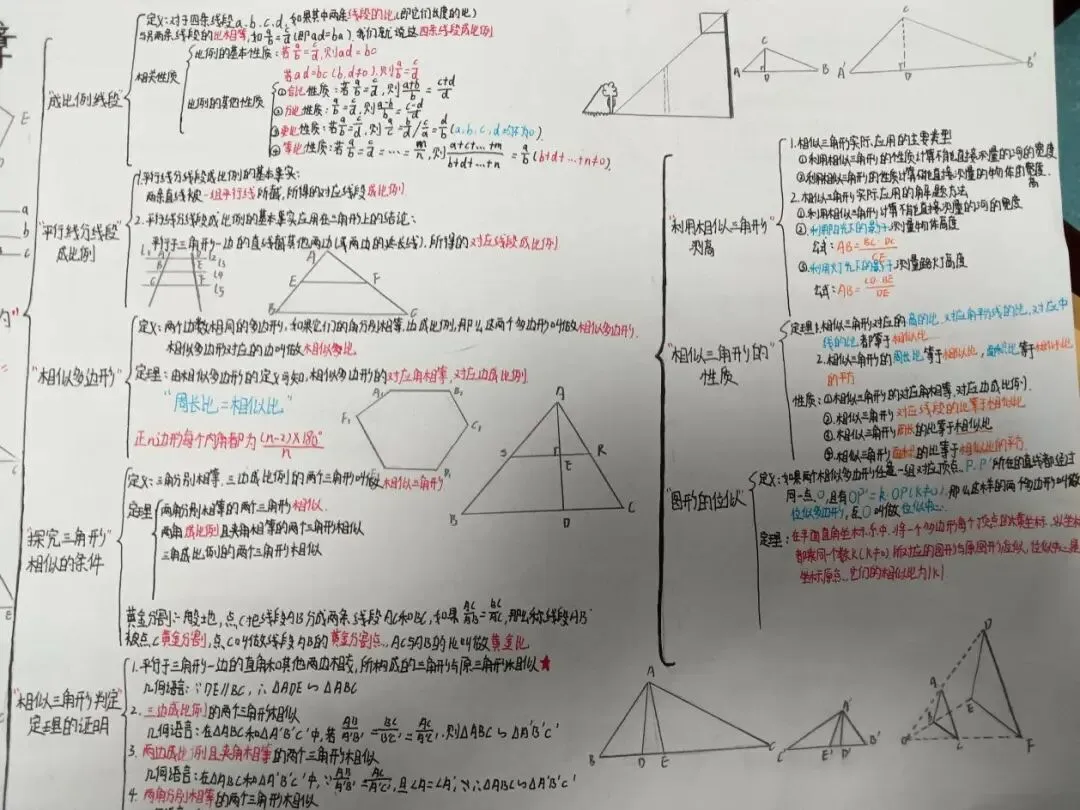 章
"成比例线段"
定义:对于四条线段a、b、c、d,如果其中两条线段的比(即它们长度的比)
与另两条线段的比相等,如a/b=c/d(即ad=bc).我们就说这四条线段成比例
相关性质
比例的基本性质:若a/b=c/d,则ad=bc
若ad=bc(b,d≠0),则a/b=c/d
比例的其他性质
①合比性质:若a/b=c/d,则(a+b)/b=(c+d)/d
②分比性质:若a/b=c/d,则(a-b)/b=(c-d)/d
③更比性质:若a/b=c/d,则a/c=b/d/c/a=d/b(a、b、c、d均不为0)
④等比性质:若a/b=c/d=…=m/n,则(a+c+…+m)/(b+d+…+n)=a/b(b+d+…+n≠0)
a
b
c
"平行线分线段
成比例"
1.平行线分线段成比例的基本事实:
两条直线被一组平行线所截,所得的对应线段成比例
2.平行线分线段成比例的基本事实应用在三角形上的结论:
平行于三角形一边的直线截其他两边(或两边的延长线),所得的对应线段成比例
A
E
F
B
C
"相似多边形"
定义:两个边数相同的多边形,如果它们的角分别相等,边成比例,那么这两个多边形叫做相似多边形.
相似多边形对应的边叫做相似多比
定理:由相似多边形的定义可知,相似多边形的对应角相等,对应边成比例
"周长比=相似比"
正n边形每个内角都为(n-2)×180°/n
A₁
B₁
C₁
F₁
E₁
D₁
A
S
R
E
B
D
C
"探究三角形
相似的条件"
定义:三角分别相等、三边成比例的两个三角形叫做相似三角形
定理
两角分别相等的两个三角形相似
两角成比例且夹角相等的两个三角形相似
三角成比例的两个三角形相似
黄金分割:一般地,点C把线段AB分成两条线段AC和BC,如果AC/AB=BC/AC,那么称线段AB
被点C黄金分割,点C叫做线段AB的黄金分割点,AC与AB的比叫做黄金比
"相似三角形判定
定理的证明"
1.平行于三角形一边的直角和其他两边相交,所构成的三角形与原三角形相似★
几何语言:∵DE∥BC,∴△ADE∽△ABC
2.三边成比例的两个三角形相似
几何语言:在△ABC和△A'B'C'中,若AB/A'B'=BC/B'C'=AC/A'C',则△ABC∽△A'B'C'
3.两边成比例且夹角相等的两个三角形相似
几何语言:在△ABC和△A'B'C'中,∵AB/A'B'=AC/A'C',且∠A=∠A',∴△ABC∽△A'B'C'
4.两角分别相等的两个三角形相似
C
A
D
B
C
A'
D
B'
"利用相似三角形
测高"
1.相似三角形实际应用的主要类型
①利用相似三角形的性质计算不能直接测量的河的宽度
②利用相似三角形的性质计算不能直接测量的物体的宽度.
高
2.相似三角形实际应用的解题方法
①利用相似三角形计算不能直接测量的河的宽度
②利用阳光下的影子测量物体高度
公式:AB=BC·DC/CE
③利用灯光下的影子测量路灯高度
公式:AB=CD·BE/DE
"相似三角形的"
性质
定理:1.相似三角形对应的高的比、对应角平分线的比、对应中
线的比都等于相似比
2.相似三角形的周长比等于相似比,面积比等于相似比
的平方
性质:①相似三角形的对应角相等,对应边成比例.
②相似三角形对应线段的比等于相似比
③相似三角形周长的比等于相似比
④相似三角形面积的比等于相似比的平方
"图形的位似"
定义:如果两个相似多边形任意一组对应顶点P、P'所在的直线都经过
同一点O,且有OP'=k·OP(k≠0),那么这样的两个多边形叫做
位似多边形,点O叫做位似中心
定理:在平面直角坐标系中,将一个多边形每个顶点的横坐标、纵坐标
都乘同一个数k(k≠0),所对应的图形与原图形位似,位似中心是
坐标原点,它们的相似比为|k|
A
B
D
E
C
A'
C'
E'
D'
B'
D
A
B
E
O
C
F